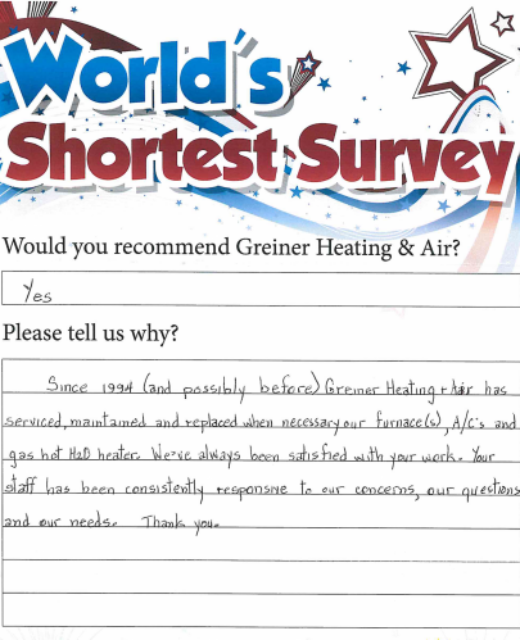 World's
Shortest Survey
Would you recommend Greiner Heating & Air?
Yes
Please tell us why?
Since 1994 (and possibly before) Greiner Heating + Air has
serviced, maintained and replaced when necessary our furnace(s), A/C's and
gas hot H2O heater. We've always been satisfied with your work. Your
staff has been consistently responsive to our concerns, our questions
and our needs. Thank you.